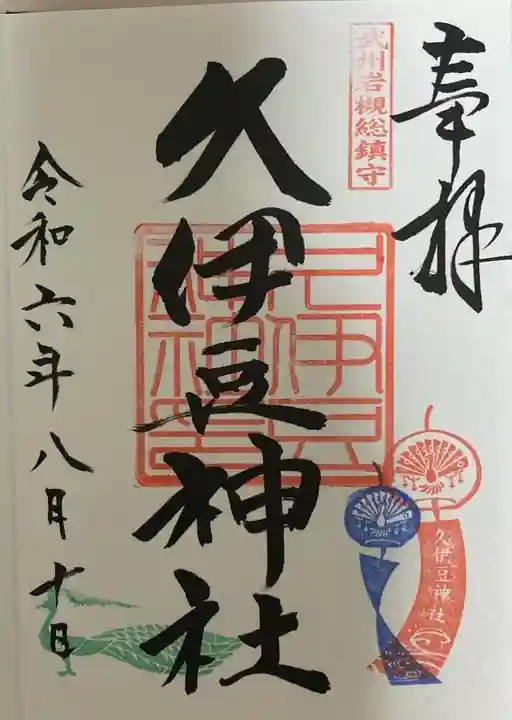 奉拝
武州岩槻総鎮守
久伊豆神社
久伊豆神社
令和六年八月十日